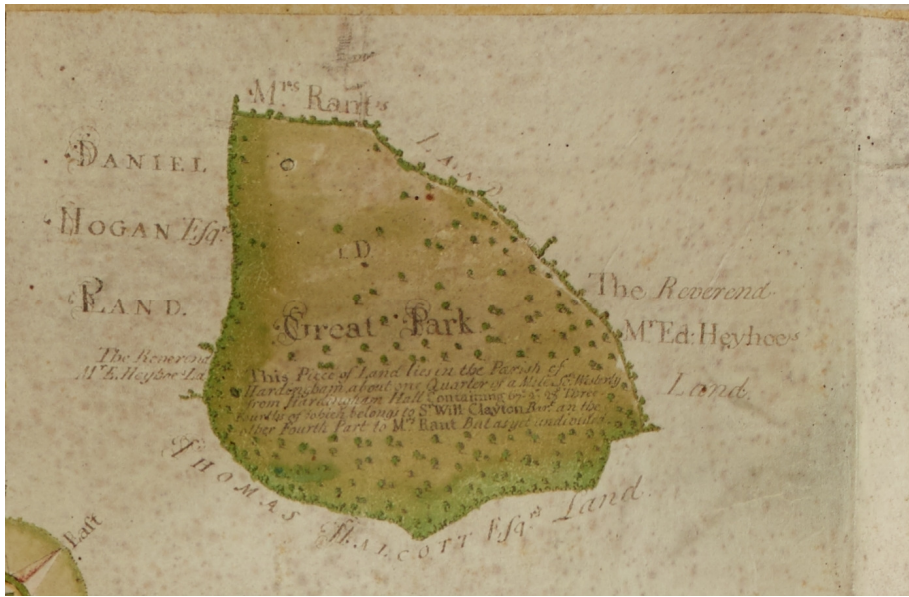 Mrs Rant's
LAND
DANIEL
HOGAN Esqrs
LAND.
LD
The Reverend
Mr Ed: Heyhoe's
Land.
Great Park
The Reverend
Mr E. Heyhoe's La
This Piece of Land lies in the Parish of
Hardingham about one Quarter of a Mile Westerly
from Hardingham Hall Containing Three
Fourths of which belongs to Sr Will Clayton Bart. an the
ther Fourth Part to Mrs Rant But as yet undivided.
THOMAS HALCOTT Esqrs Land.
East